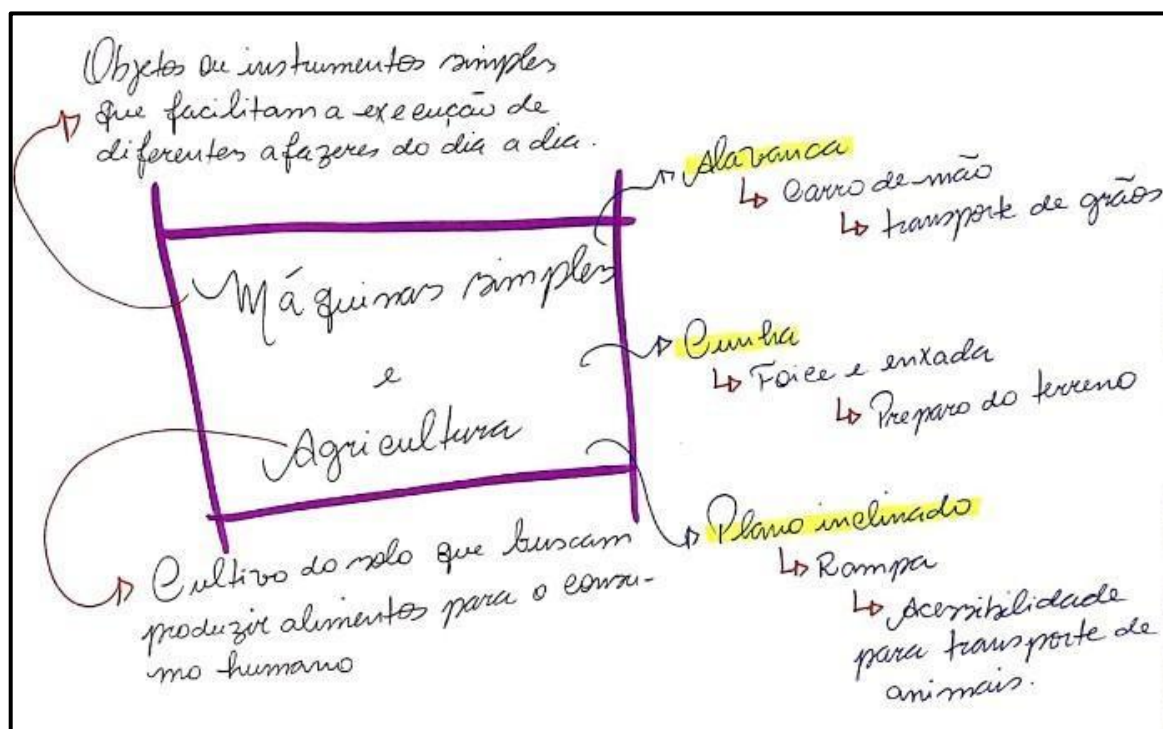 Objetos ou instrumentos simples
que facilitam a execução de
diferentes afazeres do dia a dia.
Máquinas simples
e
Agricultura
Cultivo do solo que buscam
produzir alimentos para o consu-
mo humano
Alavanca
Carro de mão
transporte de grãos
Cunha
Foice e enxada
Preparo do terreno
Plano inclinado
Rampa
Acessibilidade
para transporte de
animais.